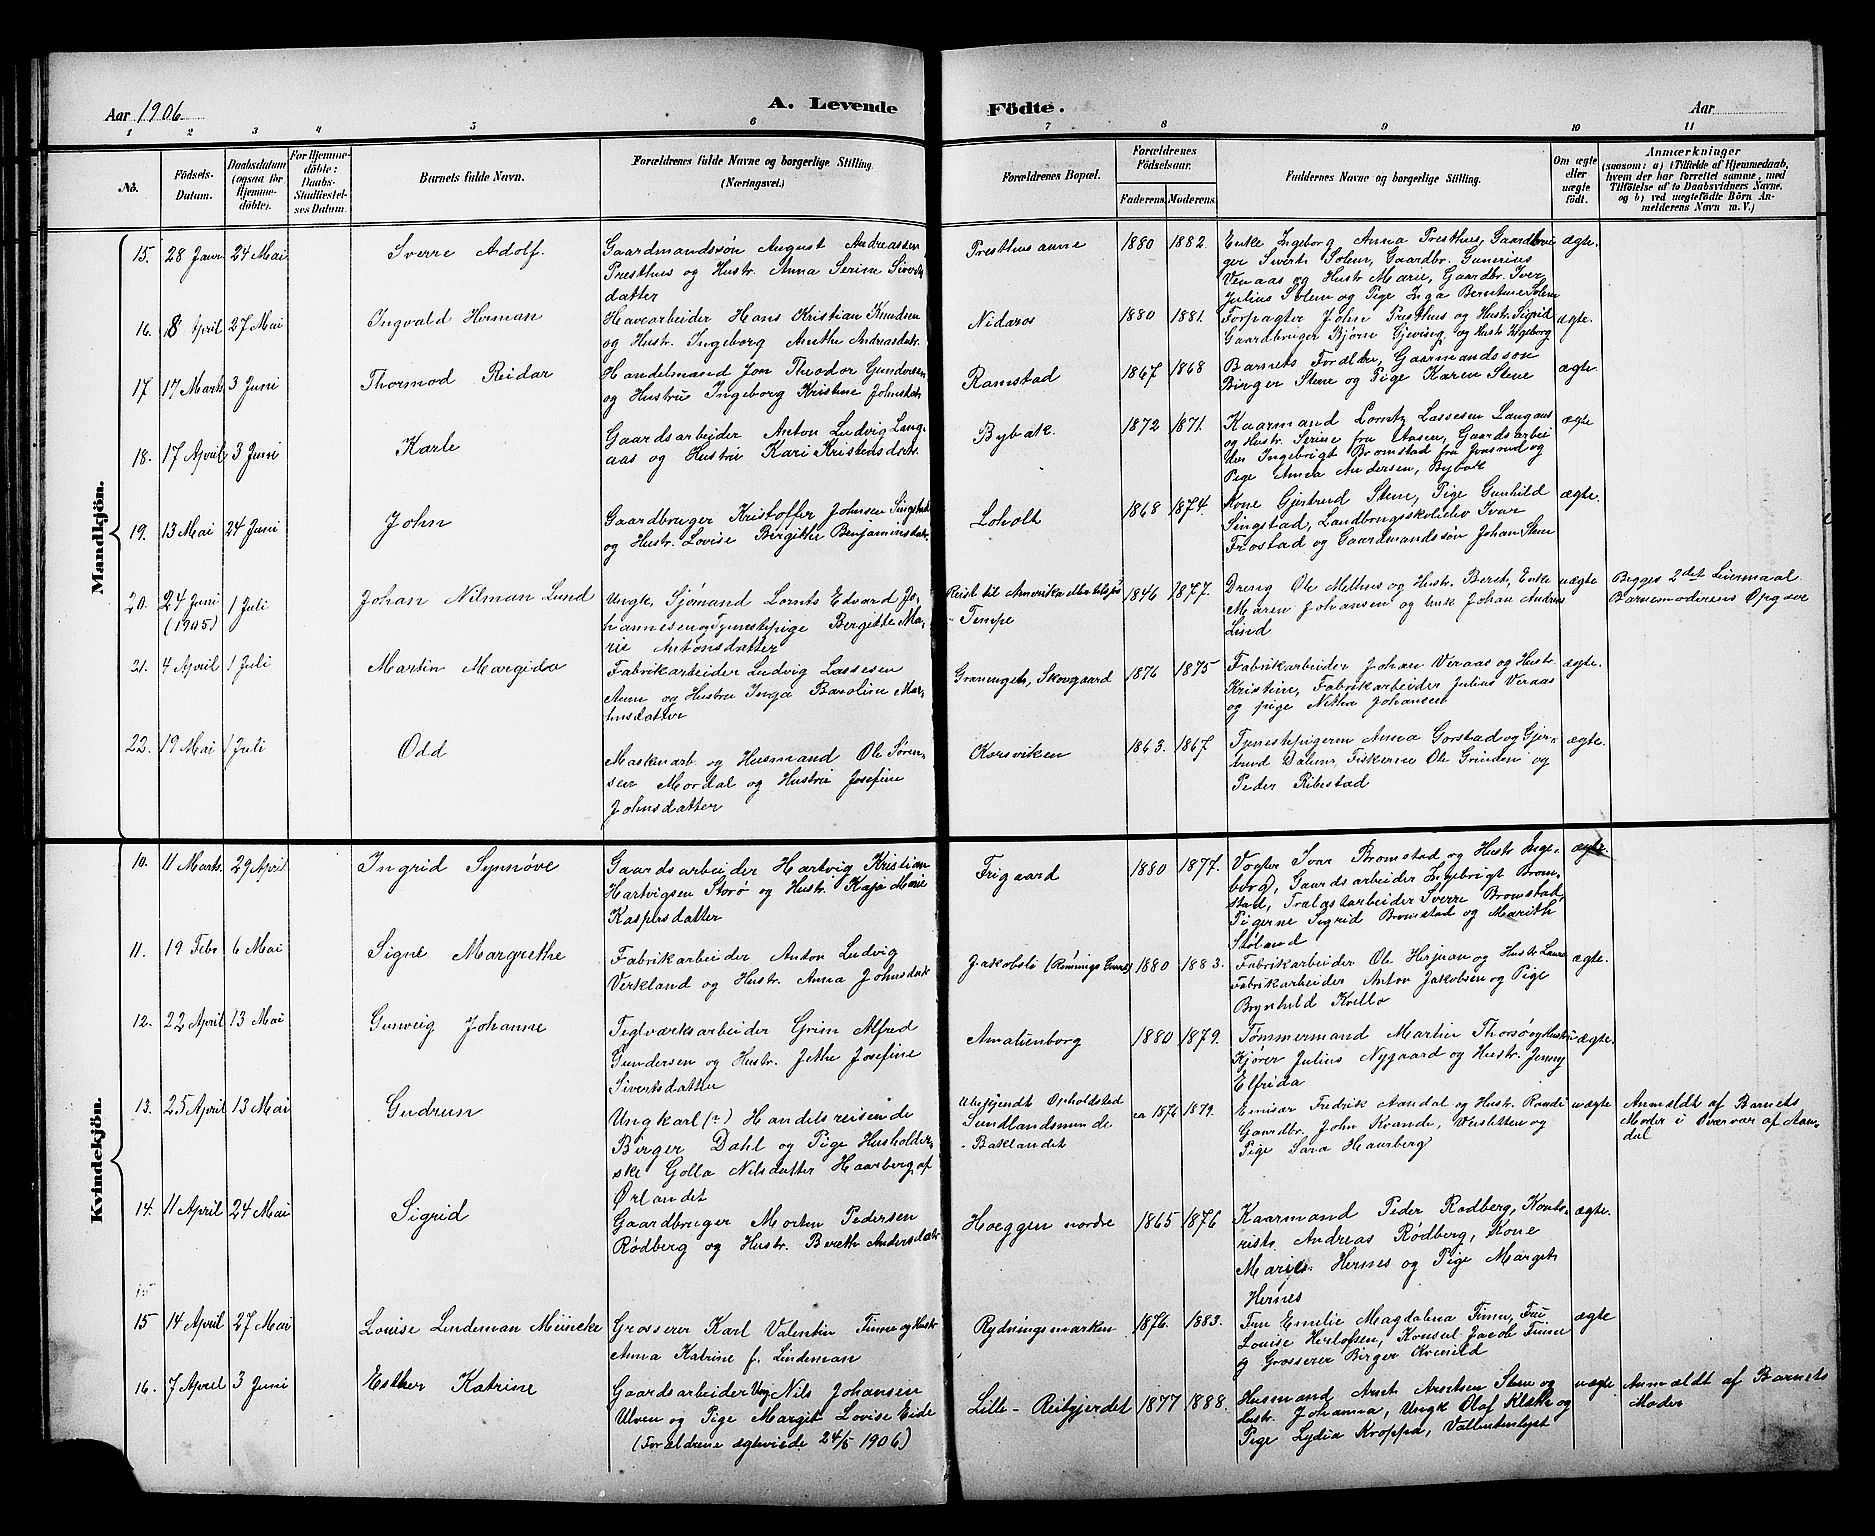 Aar 1906
A. Levende
Födte.
Aar
1 2 3 4 5 6 7 8 9 10 11
No.
Födsels-
Datum.
Daabsdatum
(ogsaa for
Hjemme-
döbte).
For Hjemme-
döbte:
Daabs-
Stadfæstel-
ses Datum.
Barnets fulde Navn.
Forældrenes fulde Navne og borgerlige Stilling.
(Næringsvei.)
Forældrenes Bopæl.
Forældrenes
Födselsaar.
Faderens. Moderens.
Faddernes Navne og borgerlige Stilling.
Om ægte
eller
uægte
födt.
Anmærkninger
(saasom: a) i Tilfælde af Hjemmedaab,
hvem der har forrettet samme, med
Tilföielse af to Daabsvidners Navne,
og b) ved uægtefödte Börn An-
melderens Navn m. V.)
Mandkjön.
15. 28 Janr 24 Mai Sverre Adolf.
Gaardmandssøn August Andreassen
Presthus og Hustr. Anna Serine Siverts
datter
Presthus aune 1880 1882.
Enke Ingeborg Anna Presthus, Gaardbru
ger Sivert Solem, Gaardbr. Gunerius
Venaas og Hustr Marie, Gaardbr. Iver
Julius Solem og Pige Inga Berntine Solem
ægte.
16. 8 April 27 Mai Ingvald Herman
Havearbeider Hans Kristian Knudsen
og Hustr. Ingeborg Anthe Andreasdatr.
Nidaros 1880 1881.
Forpagter John Presthus og Hustr. Sigrid
Gaardbruger Bjørn Gjeving og Hustr Ingeborg
ægte.
17. 17 Marts 3 Juni Thormod Reidar
Handelmand Jon Theodor Gundersen
og Hustru Ingeborg Kristine Johnsdatr
Ramstad 1867 1868
Barnets Forældre, Gaarmandssøn
Birger Stene og Pige Karen Stene
ægte.
18. 17 April 3 Juni Karle
Gaardsarbeider Anton Ludvig Lang-
aas og Hustru Kari Kristensdatr.
Bybak. 1872 1871.
Kaarmand Lorntz Lassesen Langaas
og Hustr. Serine fra Aasen, Gaardsarbei
der Ingebrigt Bromstad fra Jonsvd og
Pige Anna Andersen, Bybak
ægte
19. 13 Mai 24 Juni John
Gaardbruger Kristoffer Johnsen Singstad
og Hustr. Lovise Bergithe Benjaminsdatr.
Loholt 1868 1874.
Kone Gjertrud Stene, Pige Gunhild
Singstad, Landbrugsskoleelev Ivar
Frostad og Gaardmandssøn Johan Stene
ægte.
20. 24 Juni 1 Juli Johan Nilman Lund
(1905)
Ungk. Sjømand Lornts Edvard Jo-
hannesen og Tjenestepige Bergitte Ma-
rie Antonsdatter
Reist til Amerika
- Tempe
1846 1877.
Dreng Ole Melhus og Hustr. Beret, Enke
Maren Johansen og Johan Andreas
Lund
uægte
Begges 2det Leiermaal
Barnemoderens Opgave
21. 4 April 1 Juli Martin Margido
Fabrikarbeider Ludvig Lassesen
Aune og Hustru Inga Karoline Mar-
tinsdatter
Graneenget, Skovgaard 1876 1875
Fabrikarbeider Johan Veraas og Hustr.
Kristine, Fabrikarbeider Julius Veraas
og pige Nikka Johansen
ægte.
22. 19 Mai 1 Juli Odd
Maskinarb. og Husmand Ole Søren-
sen Mordal og Hustru Josefine
Johnsdatter
Korsviken 1863. 1867.
Tjenestepigerne Anna Gorstad og Gjer-
trud Dalum, Fiskerne Ole Grinden og
Peder Ribestad
ægte.
Kvindekjön.
10. 11 Marts 29 April Ingrid Synnøve
Gaardsarbeider Hartvig Kristian
Hartvigsen Storø og Hustr. Kaja Marie
Kaspersdatter
Frigaard 1880 1877.
Vogter Ivar Bromstad og Hustr Inge-
borg, Gaardsarbeider Ingebrigt Brom-
stad, Trælastarbeider Sverre Bromstad,
Pigerne Sigrid Bromstad og Marith
Støland
ægte.
11. 19 Febr 6 Mai Signe Margrethe
Fabrikarbeider Anton Ludvig
Verkland og Hustr. Anna Johnsdatr
Jakobsli (Rønnings Grund) 1880 1883.
Fabrikarbeider Ole Herjuan og Hustr Laura
Fabrikarbeider Anton Jakobsen og Pige
Brynhild Kvello
ægte.
12. 22 April 13 Mai Gunveig Johanne
Teglværksarbeider Grim Alfred
Gundersen og Hustr. Jethe Josefine
Sivertsdatter
Amalienborg 1880 1879.
Tømmermand Martin Thorsø og Hustru
Kjører Julius Nygaard og Hustr. Jenny
Elfrida
ægte.
13. 25 April 13 Mai Gudrun
Ungkarl (?) Handelsreisende
Birger Dahl og Pige Husholder-
ske Golla Nilsdatter Haarberg af
Ørlandet
Ubekjendt Opholdsted
Sundlandsminde
- Baklandet
ca 1874 1879.
Emisær Fredrik Aandal og Hustr. Randi
Gaardbr. John Kvande, Vusletten og
Pige Sara Haarberg
uægte
Anmeldt af Barnets
Moder i Overvær af Aan-
dal
14. 11 April 24 Mai Sigrid
Gaardbruger Morten Pedersen
Rødberg og Hustr. Berethe Andersdatr.
Hoeggen nordre 1865 1876
Kaarmand Peder Rødberg, Konto-
rist Andreas Rødberg, Kone
Marie Hernes og Pige Marget
Hernes
ægte.
15
15 14 April 27 Mai Louise Lindeman Müncke
Grosserer Karl Valentin Finne og Hustr.
Anna Katrine f. Lindeman
Rydningsmarken 1876. 1883.
Fru Emelie Magdalena Finne, Fru
Louise Herlofsen, Konsul Jacob Finne
og Grosserer Birger Kvenild
ægte
16. 7 April 3 Juni Esther Katrine
Gaardsarbeider Ung. Nils Johansen
Ulven og Pige Margit Lovise Eide
(Forældrene ægteviede 24/5 1906)
Lille-Reitgjerdet 1877 1888.
Husmand Arnt Arntsen Stene og
Hustr. Johanna, Ungk Olaf Klette og
Pige Lydia Kroppa, Vallentinlyst
uægte
Anmældt af Barnets
Moder